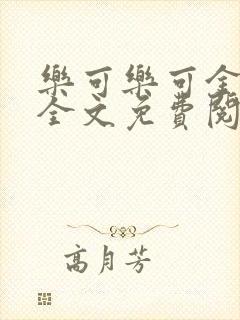 樂可樂可全
全文免費閱
高月芳